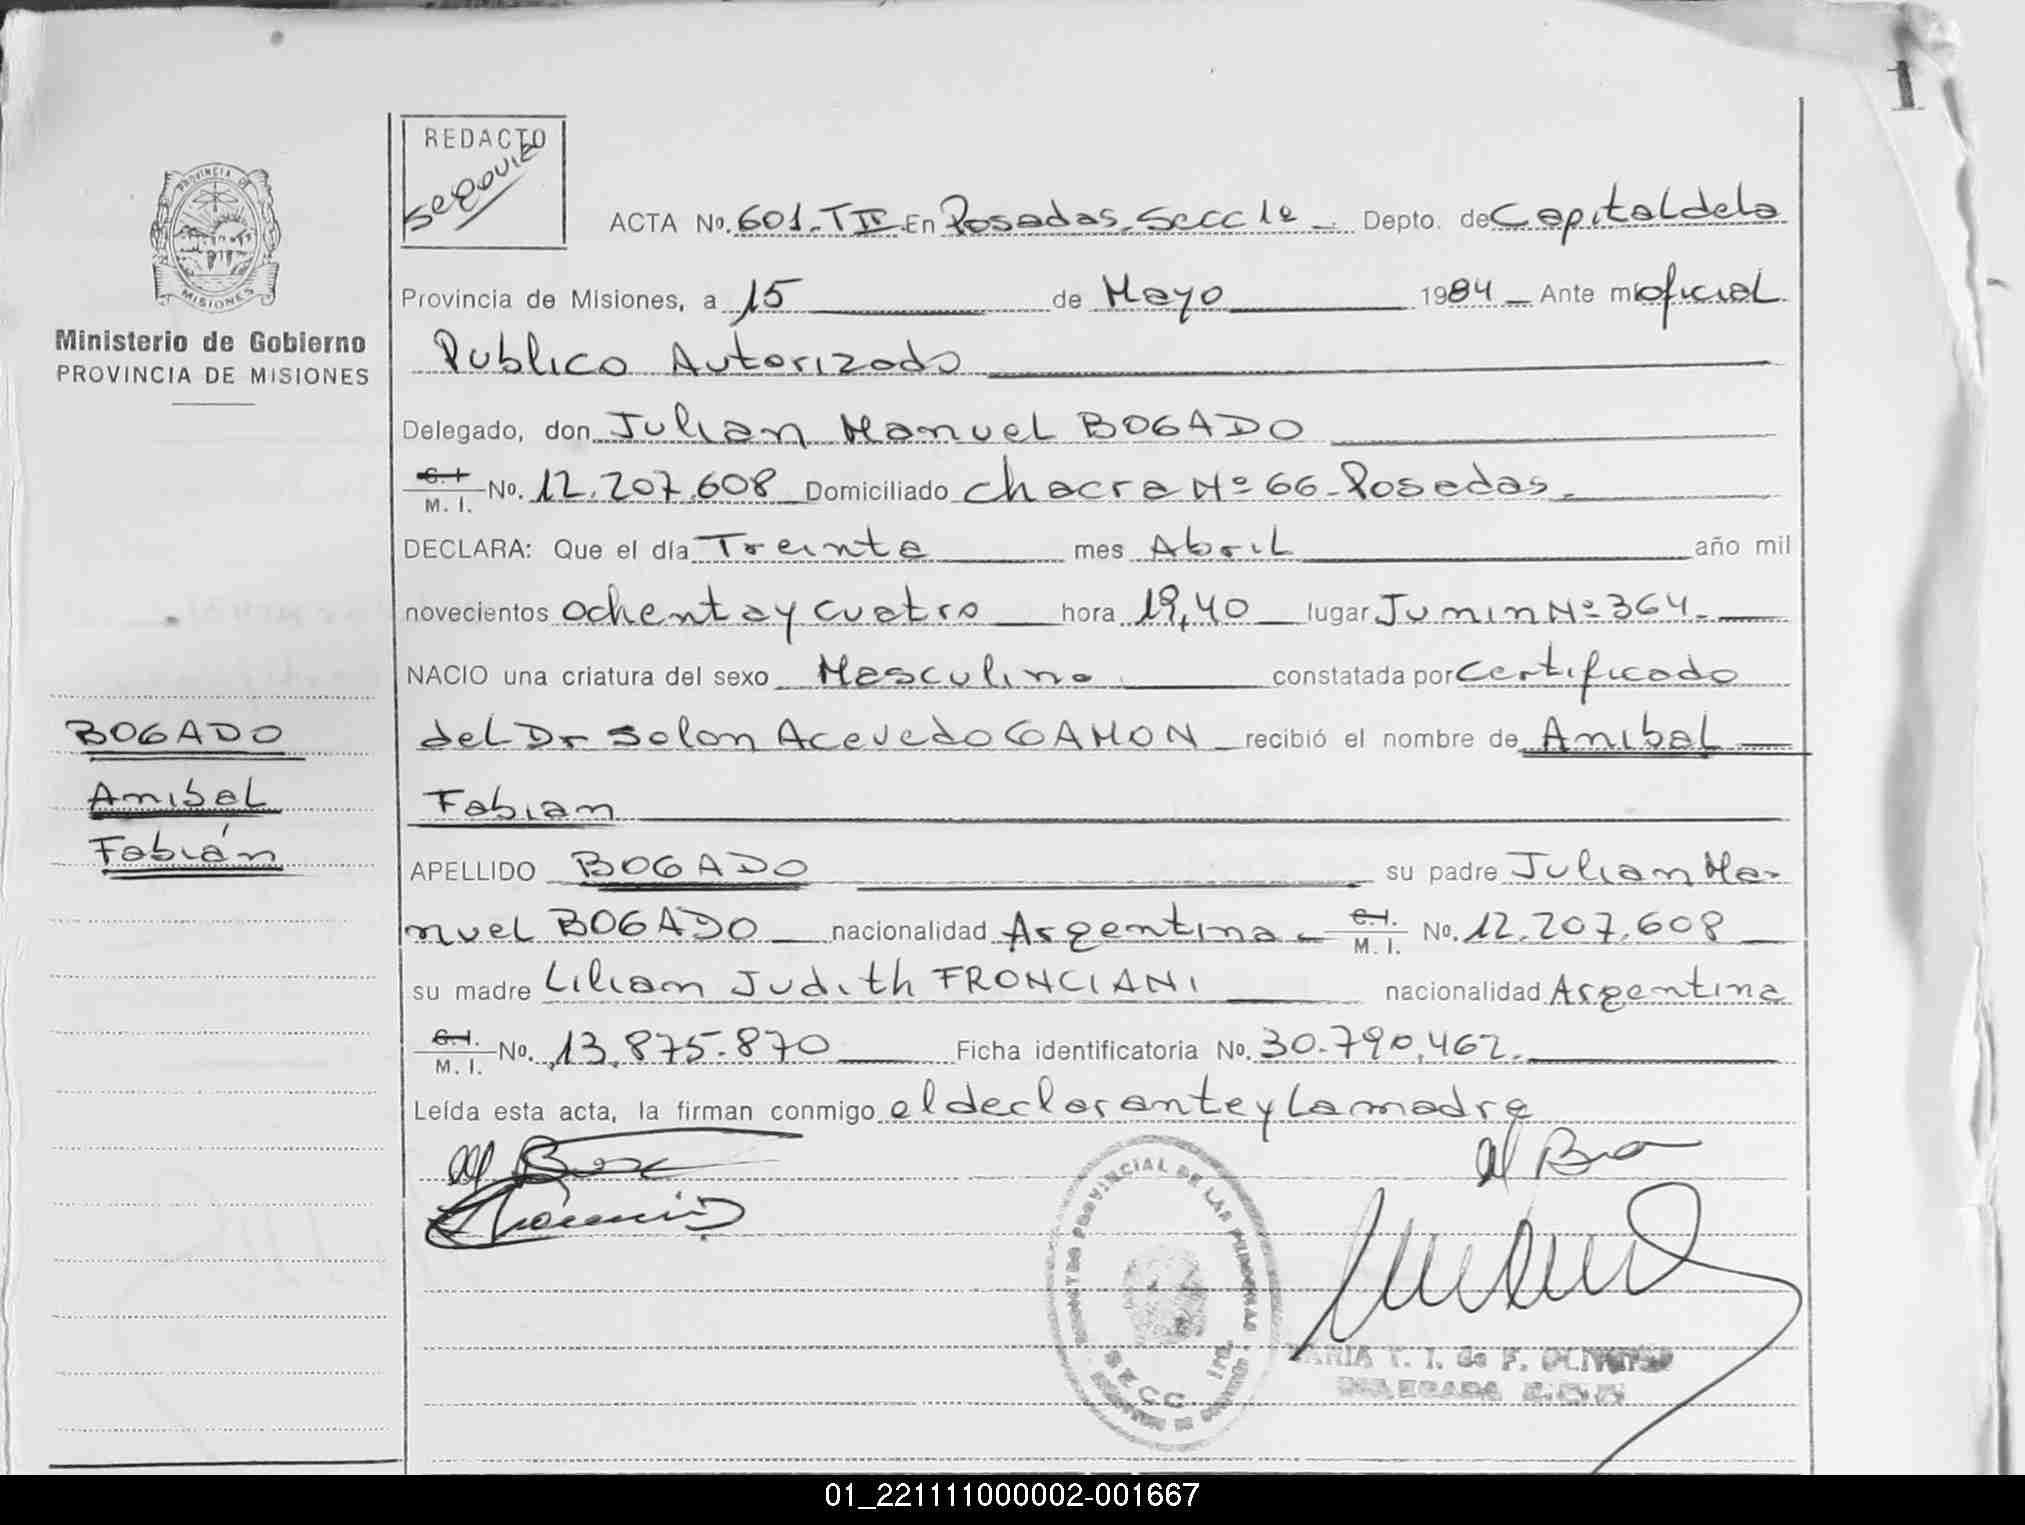 1
REDACTO
Segovia
PROVINCIA DE
MISIONES
Ministerio de Gobierno
PROVINCIA DE MISIONES
ACTA No. 601. TII En Posadas, Secc 1a Depto. de Capital de la
Provincia de Misiones, a 15 de Mayo 1984 Ante mi oficial
Publico Autorizado
Delegado, don Julian Manuel BOGADO
C.I. M. I. No. 12.207.608 Domiciliado chacra Nº 66 - Posadas.
DECLARA: Que el día Treinta mes Abril año mil
novecientos ochenta y cuatro hora 19,40 lugar Junin Nº 364.
NACIO una criatura del sexo Masculino constatada por Certificado
del Dr Solon Acevedo GAMON recibió el nombre de Anibal
Fabian
APELLIDO BOGADO su padre Julian Ma-
nuel BOGADO nacionalidad Argentina C.I. M. I. No. 12.207.608
su madre Lilian Judith FRONCIANI nacionalidad Argentina
C.I. M. I. No. 13.875.870 Ficha identificatoria No. 30.790.462.
Leída esta acta, la firman conmigo el declarante y la madre
BOGADO
Anibal
Fabián
PROVINCIAL DE LAS PERSONAS
SECC. 1ra.
MARIA T. I. de F.
01_221111000002-001667